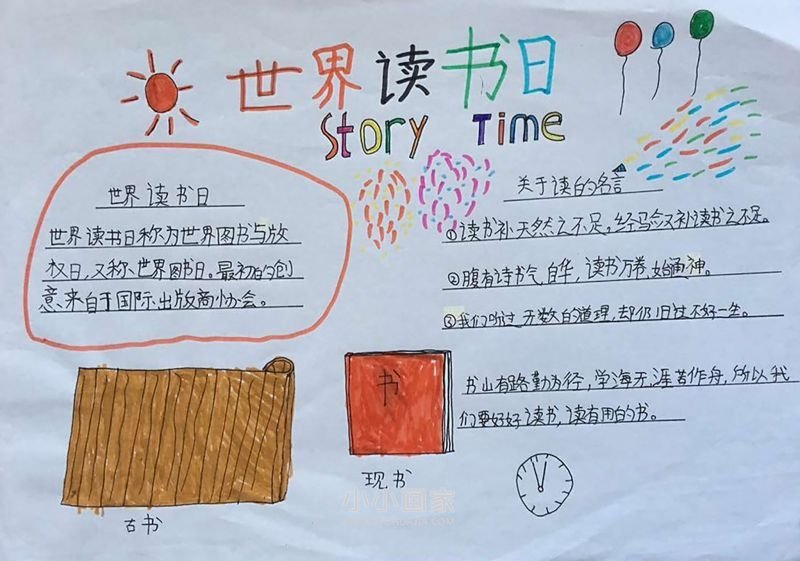 世界读书日
Story Time
世界读书日
世界读书日称为世界图书与版
权日,又称世界图书日。最初的创
意来自于国际出版商协会。
关于读的名言
①读书补天然之不足,经验又补读书之不足。
②腹有诗书气自华,读书万卷始通神。
③我们听过无数的道理,却仍旧过不好一生。
书山有路勤为径,学海无涯苦作舟,所以我
们要好好读书,读有用的书。
书
古书
现书
小小画家